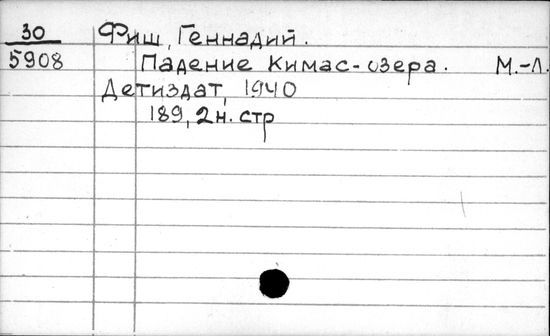 30 Фиш, Геннадий.
5908 Падение Кимас-озера. М.-Л.
Детиздат, 1940
189, 2 н. стр